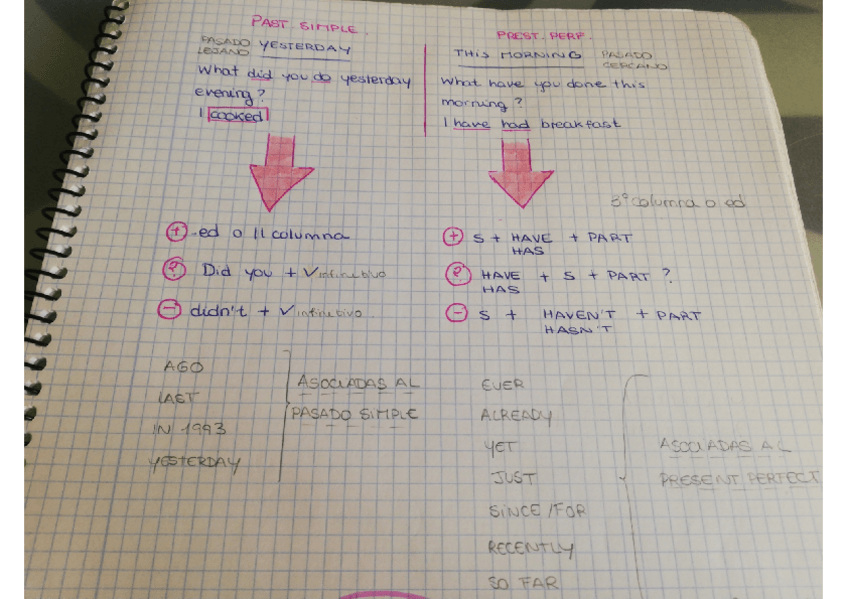 PAST SIMPLE.
PASADO LEJANO YESTERDAY
What did you do yesterday
evening?
I cooked
+ -ed o II columna
? Did you + V infinitivo
- didn't + V infinitivo
AGO
LAST
IN 1993
YESTERDAY
ASOCIADAS AL
PASADO SIMPLE
PREST. PERF.
THIS MORNING PASADO CERCANO
What have you done this
morning?
I have had breakfast
3ª columna o ed
+ S + HAVE + PART
HAS
? HAVE + S + PART ?
HAS
- S + HAVEN'T + PART
HASN'T
EVER
ALREADY
YET
JUST
SINCE/FOR
RECENTLY
SO FAR
ASOCIADAS AL
PRESENT PERFECT